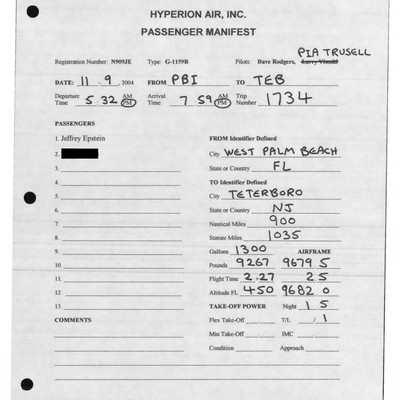 HYPERION AIR, INC.
PASSENGER MANIFEST
PIA TRUSELL
Registration Number: N909JE Type: G-1159B Pilots: Dave Rodgers, Larry Visoski
DATE: 11 - 9 , 2004 FROM PBI TO TEB
Departure Time 5 32 AM PM Arrival Time 7 59 AM PM Trip Number 1734
PASSENGERS
1. Jeffrey Epstein FROM Identifier Defined
2. City WEST PALM BEACH
3. State or Country FL
4. TO Identifier Defined
5. City TETERBORO
6. State or Country NJ
7. Nautical Miles 900
8. Statute Miles 1035
9. Gallons 1300 AIRFRAME
10. Pounds 9267 9679 5
11. Flight Time 2+27 2 5
12. Altitude FL 450 9682 0
13. TAKE-OFF POWER Night 1 5
COMMENTS Flex Take-Off T/L 1
Min Take-Off IMC
Condition Approach